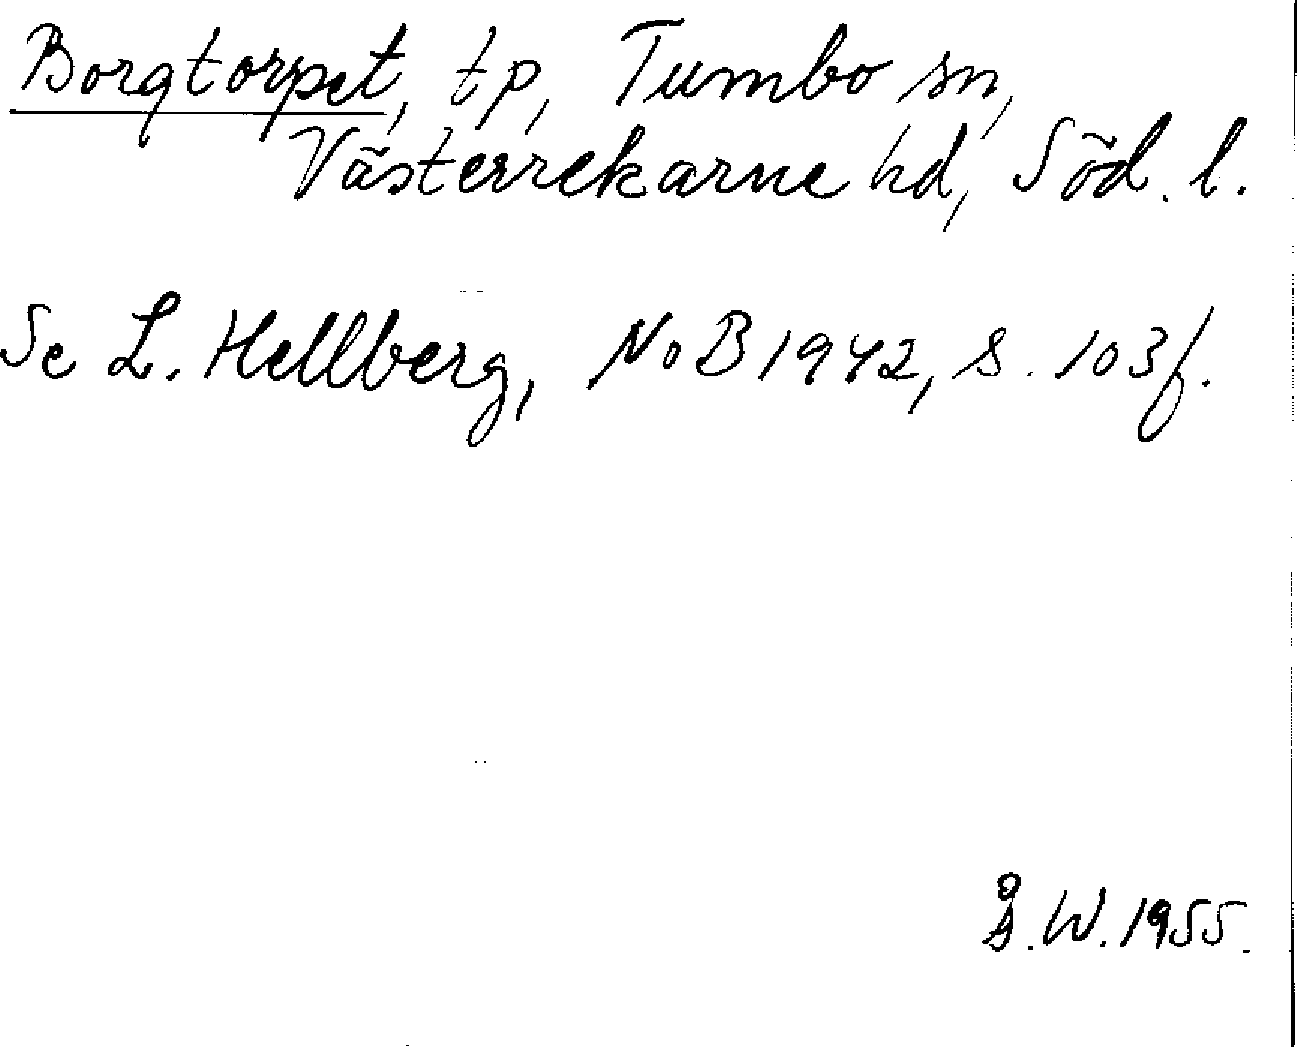 Borgtorpet, tp, Tumbo sn,
Västerrekarne hd, Söd. l.
Se L. Hellberg, NoB 1942, s. 103 f.
Å. W. 1955.